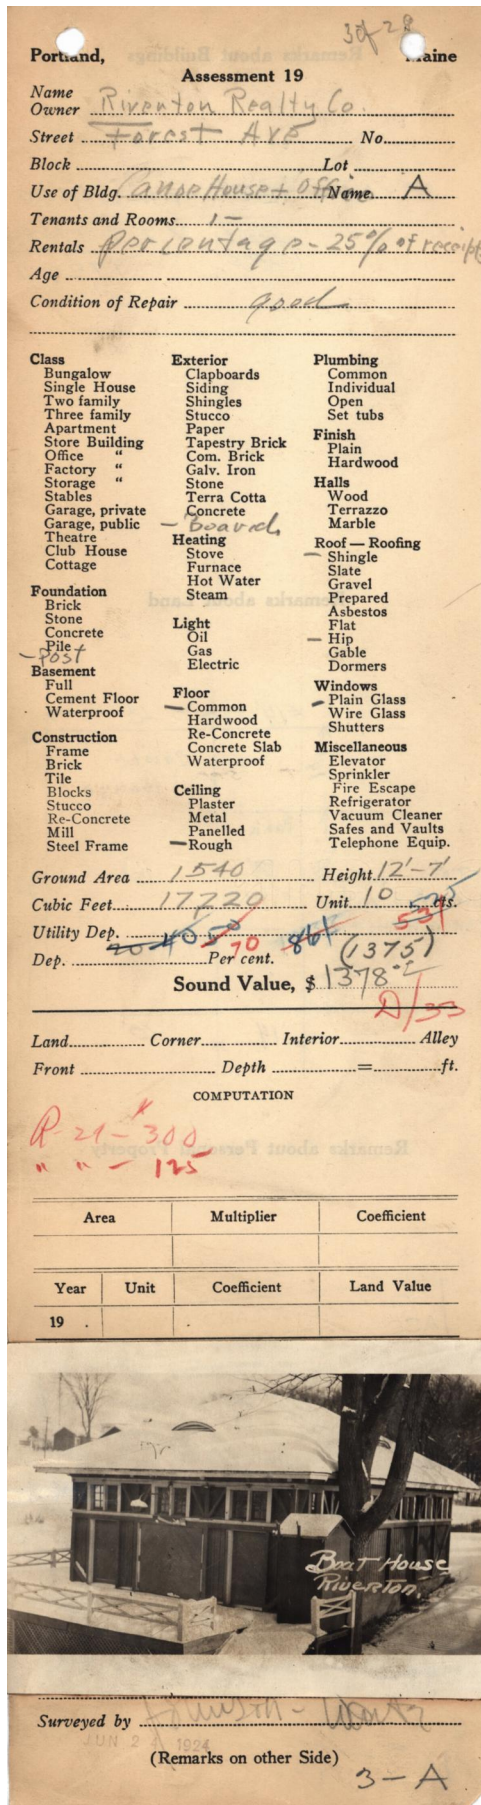 3 of 28
Portland, Maine
Assessment 19
Name
Owner Riverton Realty Co.
Street Forest Ave No.
Block Lot
Use of Bldg. Canoe House + Office Name A
Tenants and Rooms 1-
Rentals Percentage - 25% of receipts
Age
Condition of Repair good
Class
Bungalow
Single House
Two family
Three family
Apartment
Store Building
Office "
Factory "
Storage "
Stables
Garage, private
Garage, public
Theatre
Club House
Cottage
Foundation
Brick
Stone
Concrete
Pile
- Post
Basement
Full
Cement Floor
Waterproof
Construction
Frame
Brick
Tile
Blocks
Stucco
Re-Concrete
Mill
Steel Frame
Exterior
Clapboards
Siding
Shingles
Stucco
Paper
Tapestry Brick
Com. Brick
Galv. Iron
Stone
Terra Cotta
Concrete
- Board
Heating
Stove
Furnace
Hot Water
Steam
Light
Oil
Gas
Electric
Floor
- Common
Hardwood
Re-Concrete
Concrete Slab
Waterproof
Ceiling
Plaster
Metal
Panelled
- Rough
Plumbing
Common
Individual
Open
Set tubs
Finish
Plain
Hardwood
Halls
Wood
Terrazzo
Marble
Roof — Roofing
- Shingle
Slate
Gravel
Prepared
Asbestos
Flat
- Hip
Gable
Dormers
Windows
- Plain Glass
Wire Glass
Shutters
Miscellaneous
Elevator
Sprinkler
Fire Escape
Refrigerator
Vacuum Cleaner
Safes and Vaults
Telephone Equip.
Ground Area 1540 Height 12'-7'
Cubic Feet 17220 Unit 10 cts.
531
Utility Dep. 40 50 70 861 (1375)
Dep. 20 Per cent.
Sound Value, $ 1378
D/33
Land Corner Interior Alley
Front Depth = ft.
COMPUTATION
R-21- 300
" " - 125
Area Multiplier Coefficient
Year Unit Coefficient Land Value
19 .
Boat House
Riverton.
Surveyed by
JUN 2 1924
(Remarks on other Side)
3-A